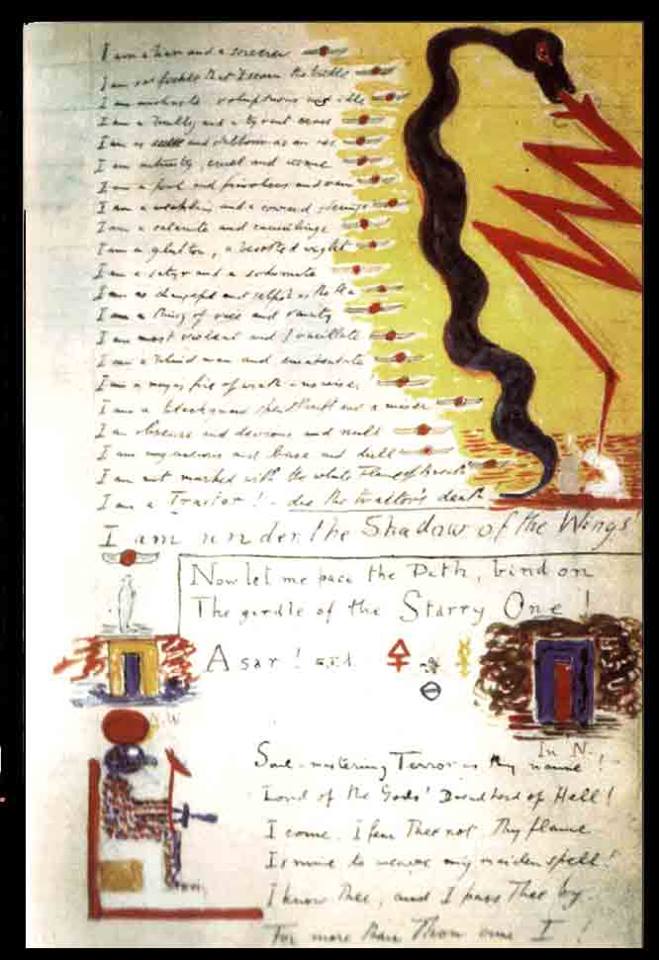 I am a liar and a sorcerer
I am so fickle that I scorn the bridle
I am unchaste, voluptuous and idle
I am a bully and a tyrant crass
I am as dull and stubborn as an ass
I am untrusty, cruel and insane
I am a fool and frivolous and vain
I am a weakling and a coward
I am a catamite and cunnilinge
I am a glutton, a besotted wight
I am a satyr and a sodomite
I am as changeful and selfish as the Sea
I am a thing of vice and vanity
I am most violent and I vacillate
I am a blind man and emasculate
I am a raging fire of wrath - no wiser!
I am a blackguard spendthrift and a miser
I am obscure and devious and null
I am ungracious and base and dull
I am not marked with the white Flame of Breath
I am a Traitor! - die the traitor's death
I am under the Shadow of the Wings!
Now let me pace the Path, bind on
The girdle of the Starry One!
Asar!
A.W
In N.
Soul-mastering Terror is thy name!
Lord of the Gods! Dread Lord of Hell!
I come. I fear Thee not. Thy flame
Is mine to weave my maiden spell!
I know Thee, and I pass Thee by.
For more than Thou am I!